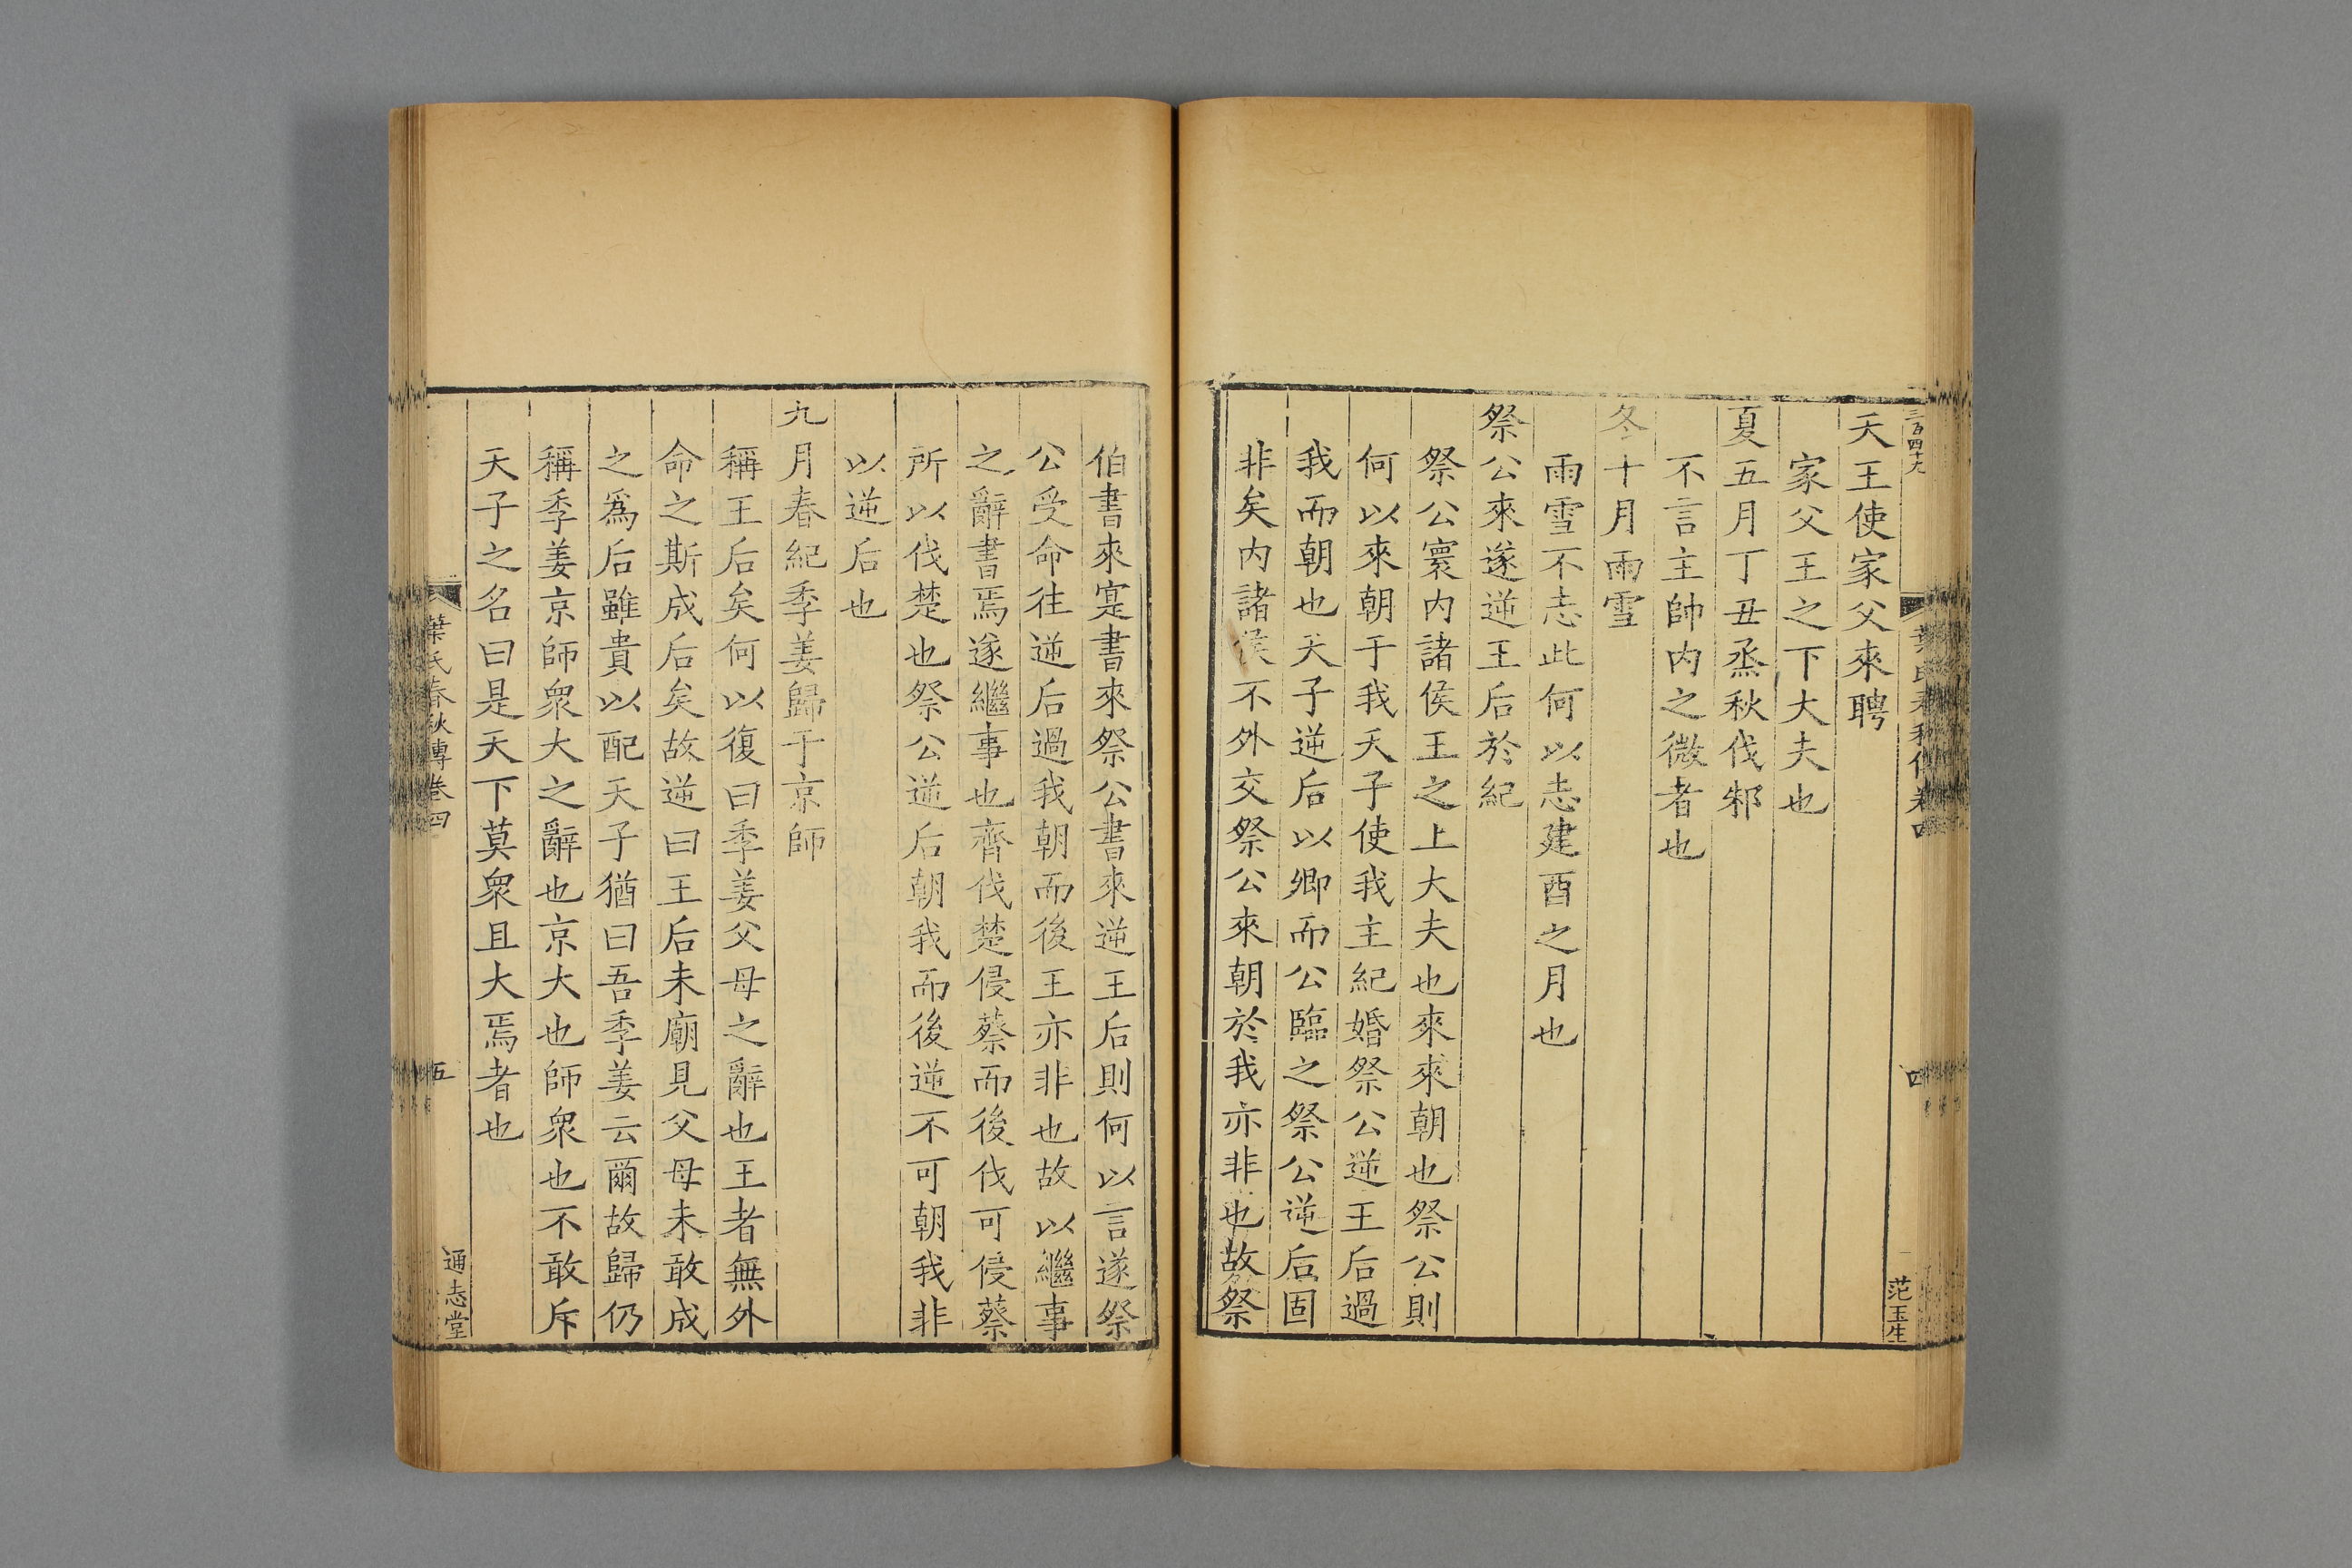 三百四十九
天王使家父來聘
家父王之下大夫也
夏五月丁丑烝秋伐邾
不言主帥内之微者也
冬十月雨雪
雨雪不志此何以志建酉之月也
祭公來遂逆王后於紀
祭公寰内諸侯王之上大夫也來來朝也祭公則
何以來朝于我天子使我主紀婚祭公逆王后過
我而朝也天子逆后以卿而公臨之祭公逆后固
非矣内諸侯不外交祭公來朝於我亦非也故祭
葉氏春秋傳卷四
四
范玉生
伯書來寔書來祭公書來逆王后則何以言遂祭
公受命往逆后過我朝而後王亦非也故以繼事
之辭書焉遂繼事也齊伐楚侵蔡而後伐可侵蔡
所以伐楚也祭公逆后朝我而後逆不可朝我非
以逆后也
九月春紀季姜歸于京師
稱王后矣何以復曰季姜父母之辭也王者無外
命之斯成后矣故逆曰王后未廟見父母未敢成
之爲后雖貴以配天子猶曰吾季姜云爾故歸仍
稱季姜京師衆大之辭也京大也師衆也不敢斥
天子之名曰是天下莫衆且大焉者也
葉氏春秋傳卷四
五
通志堂